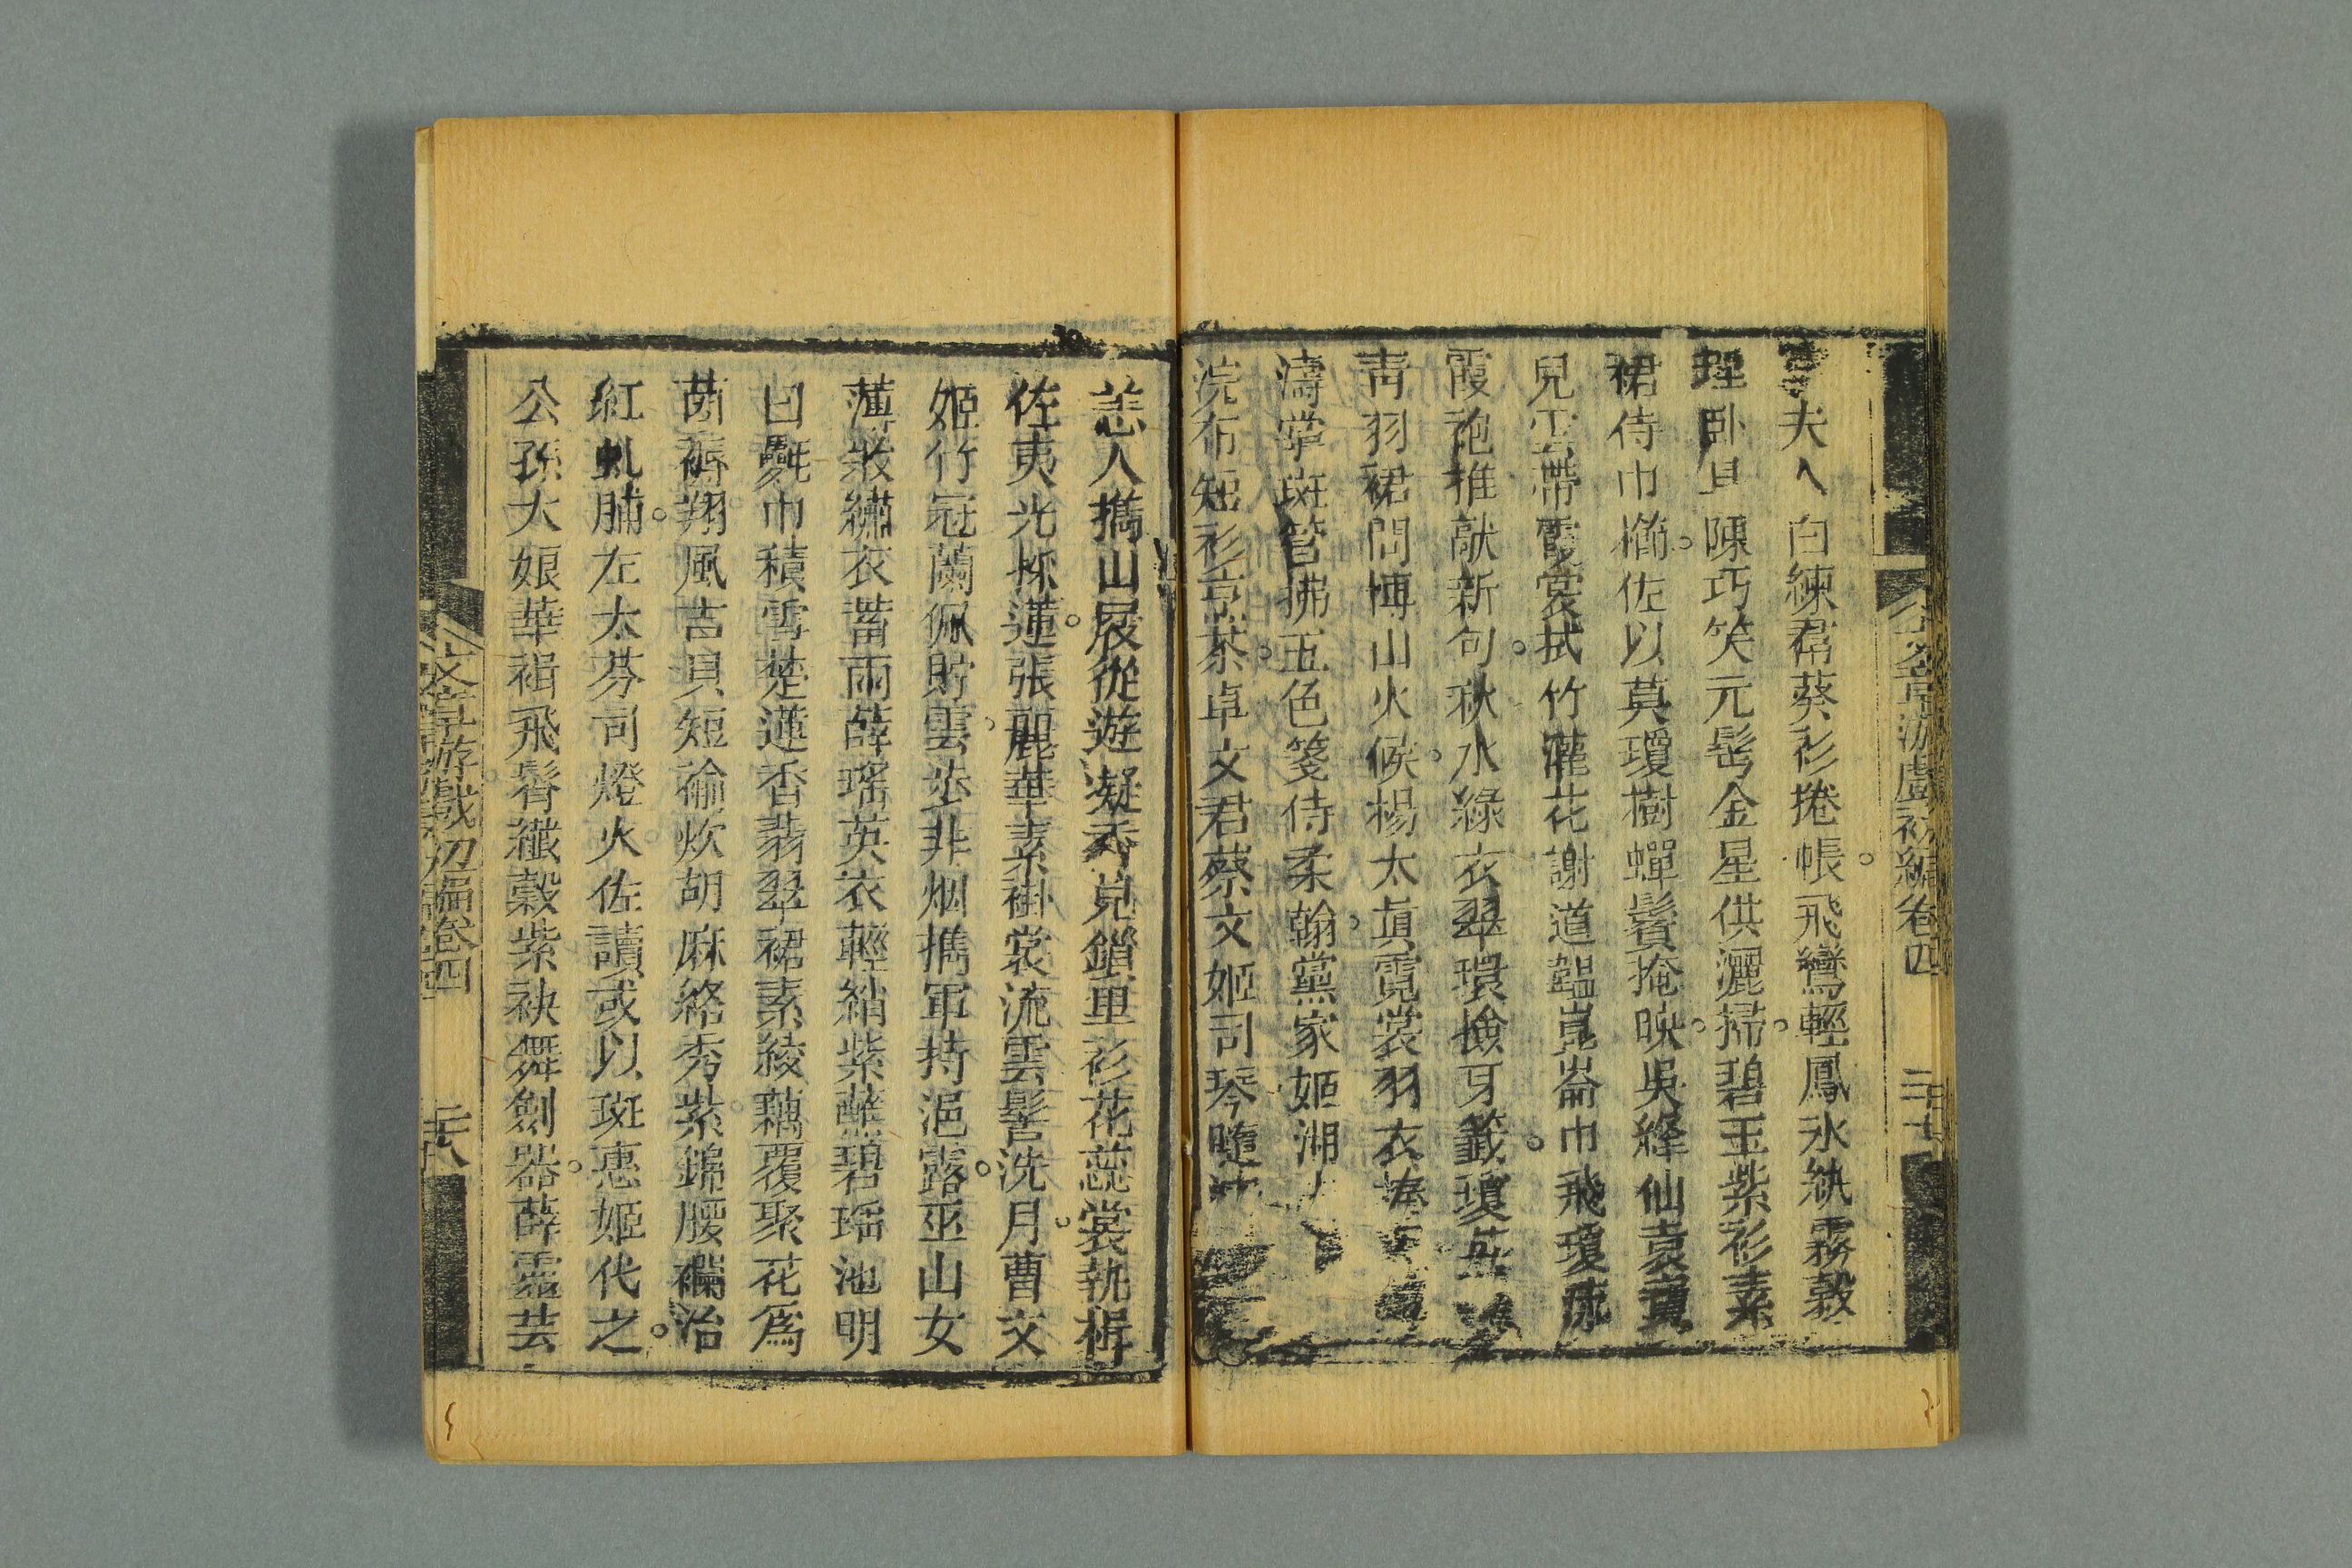 夫人白練帬葵衫捲帳飛鸞輕鳳氷紈霧縠
理卧具陳巧笑元髢金星供灑掃碧玉紫衫素
裙侍巾櫛佐以莫瓊樹蟬鬢掩映吳絳仙袁寶
兒雲帶霞裳拭竹灌花謝道韞崑崙巾飛瓊
霞袍推敲新句秋水綠衣翠環撿牙籤瓊
青羽裙問博山火候楊太眞霓裳羽衣
濤掌斑管拂五色箋侍柔翰黨家姬湖
浣布短衫烹茶卓文君蔡文姬司琴隨
恙人攜山屐從遊凝香兒鎖里衫花蕊裳執楫
佐夷光採蓮張麗華素褂裳流雲髻洗月曹文
姬竹冠蘭佩貯雲步非烟攜軍持浥露巫山女
薄散繡衣蓄雨薛瑶英衣輕綃紫蘸碧瑶池明
曰氎巾積雪楚蓮香翡翠裙素綾藕覆聚花爲
茵褥翔風吉貝短褕炊胡麻絳秀紫錦腰襴治
紅虬脯左太芬司燈火佐讀或以斑惠姬代之
公孫大娘華褂飛髾纖縠紫袂舞劍器薛靈芸
文章游戲初編卷四 二十七
文章游戲初編卷四 二十八